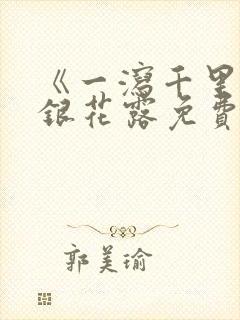 《一瀉千里
銀花露免費
郭美瑜